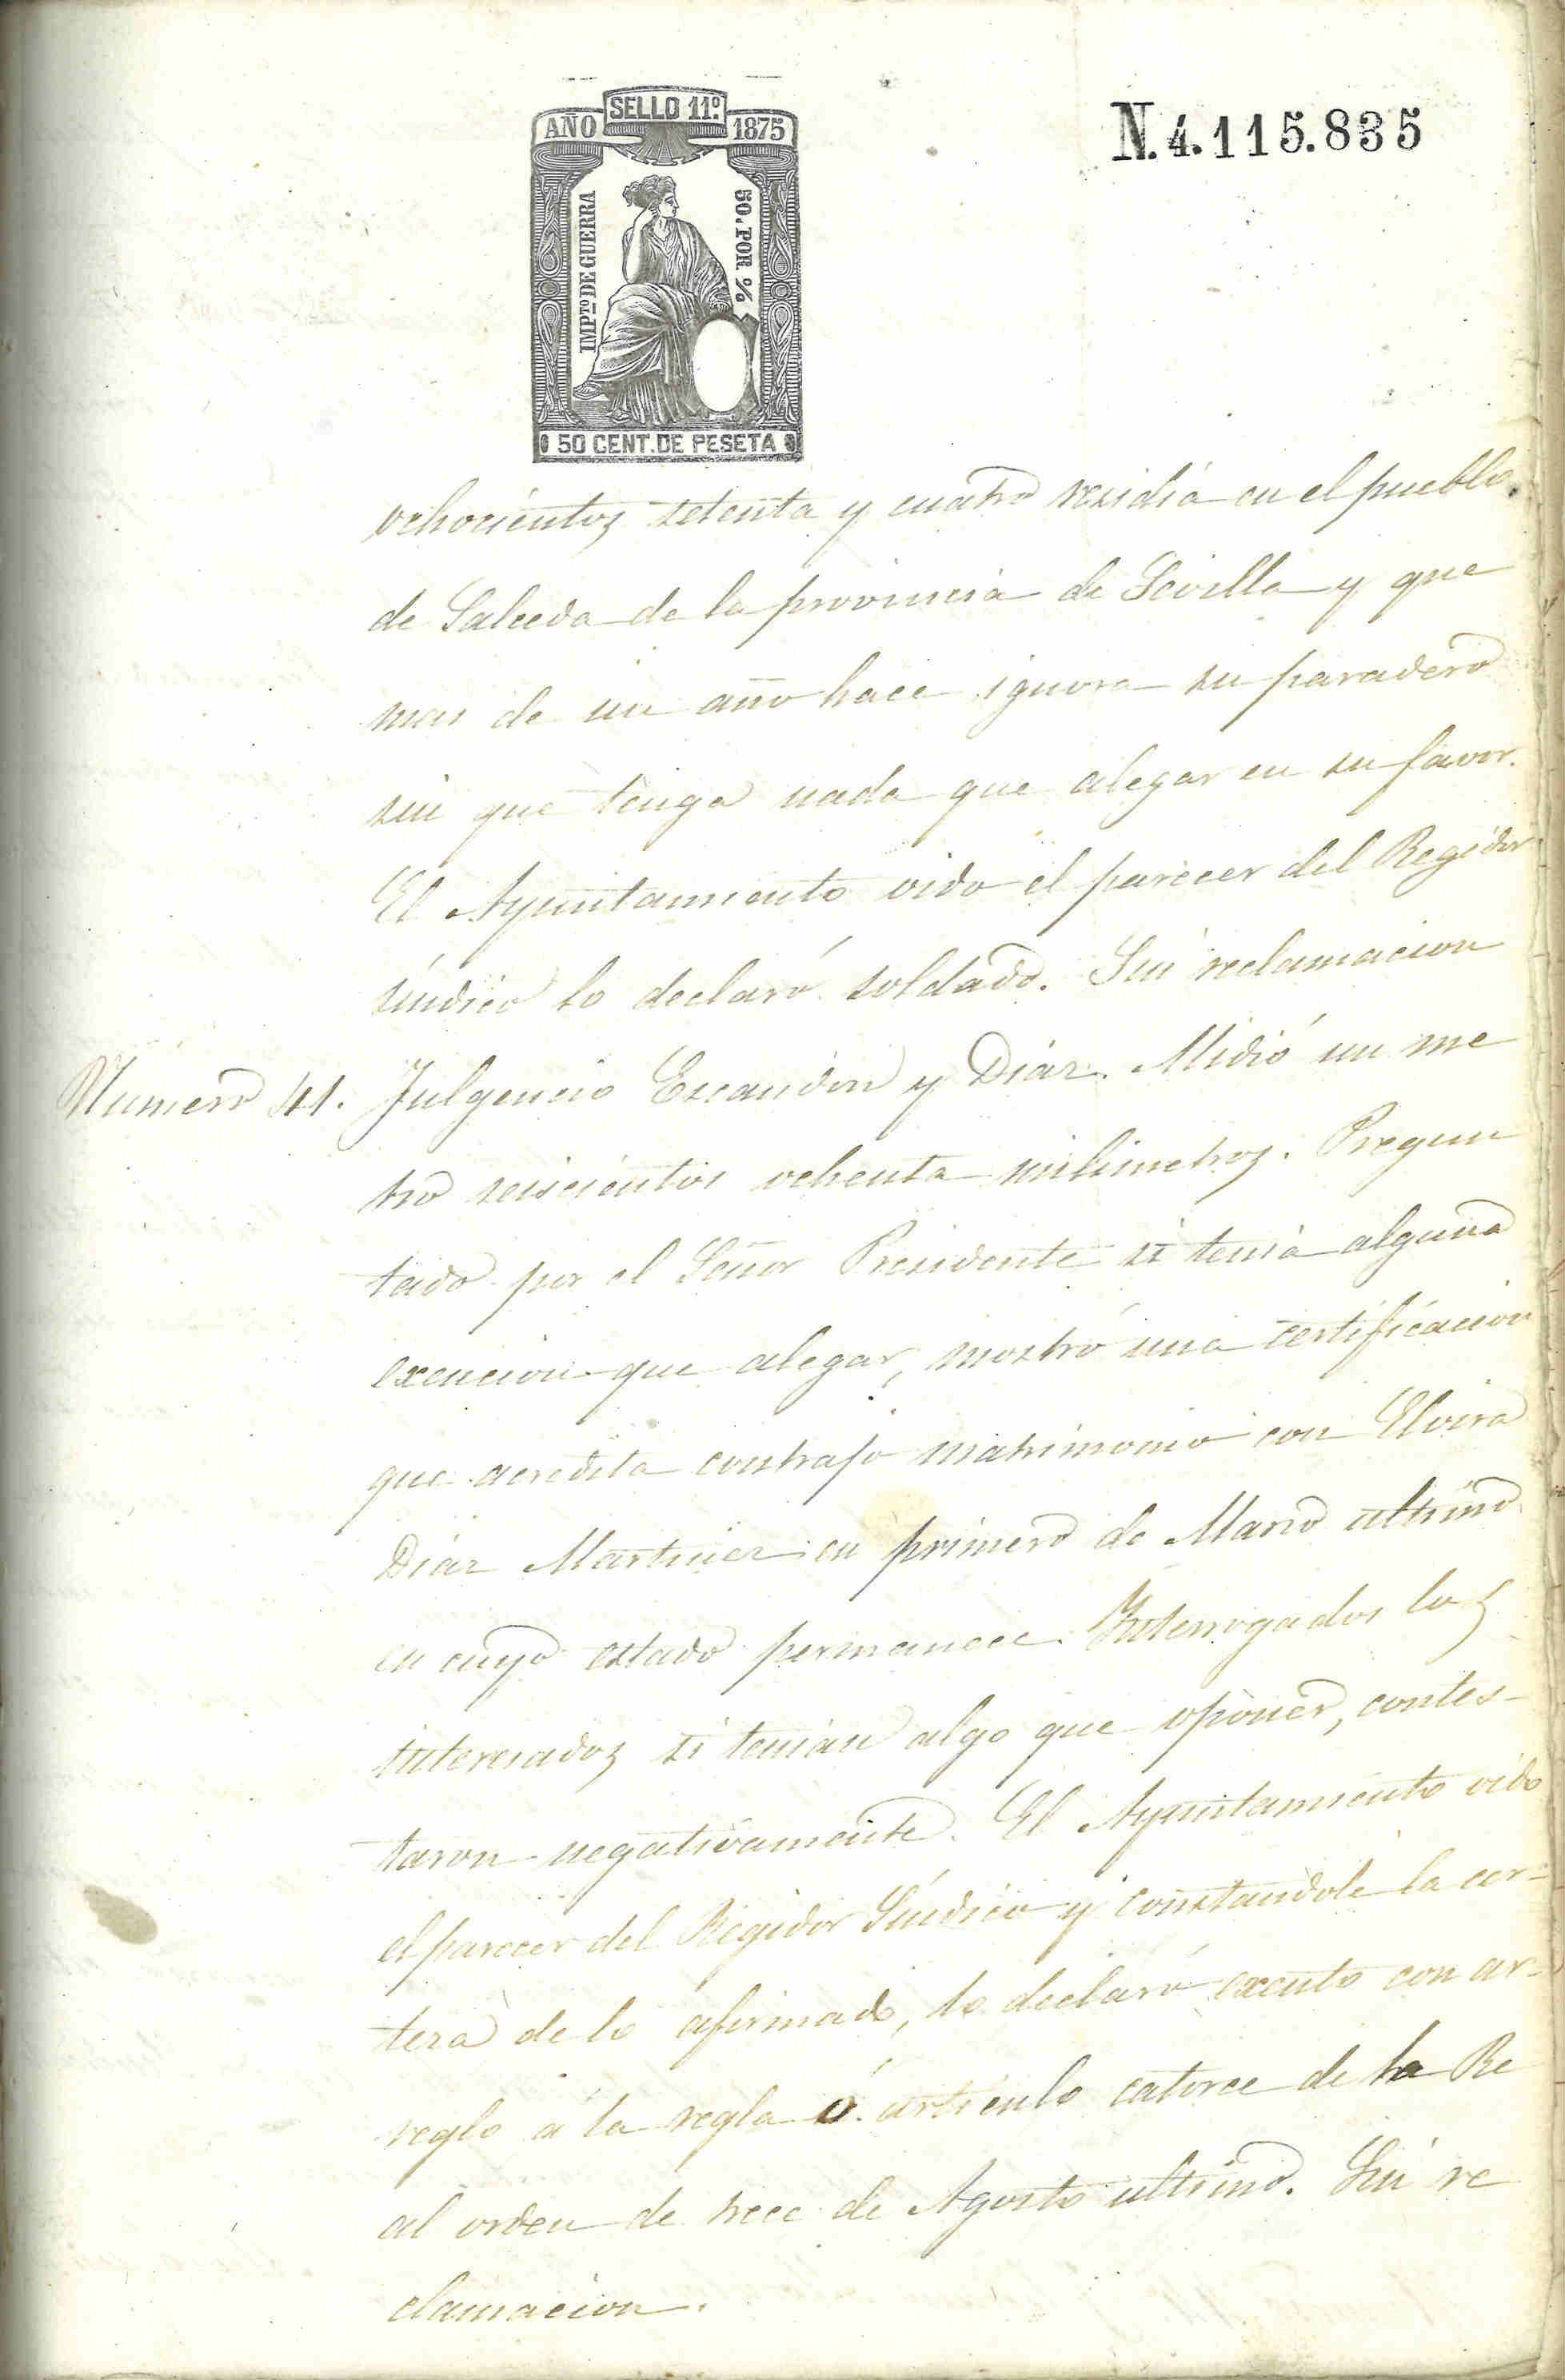 SELLO 11º
AÑO 1875
IMPTO DE GUERRA
50 POR %
50 CENT. DE PESETA
N. 4.115.835
ochocientos setenta y cuatro residia en el pueblo
de Salceda de la provincia de Sevilla y que
mas de un año hace ignora su paradero
sin que tenga nada que alegar en su favor.
El Ayuntamiento oido el parecer del Regidor
síndico lo declaró soldado. Sin reclamacion
Número 41. Fulgencio Escandon y Diaz. Midió un me
tro seiscientos ochenta milimetros. Pregun
tado por el Señor Presidente si tenia alguna
exencion que alegar, mostró una certificacion
que acredita contrajo matrimonio con Elvira
Diaz Martinez en primero de Marzo ultimo
en cuyo estado permanece. Interrogados los
interesados si tenian algo que oponer, contes-
taron negativamente. El Ayuntamiento oido
el parecer del Regidor Síndico y constandole la cer-
teza de lo afirmado, lo declaró exento con ar-
reglo á la regla articulo catorce de la Re
al orden de trece de Agosto ultimo. Sin re
clamacion.